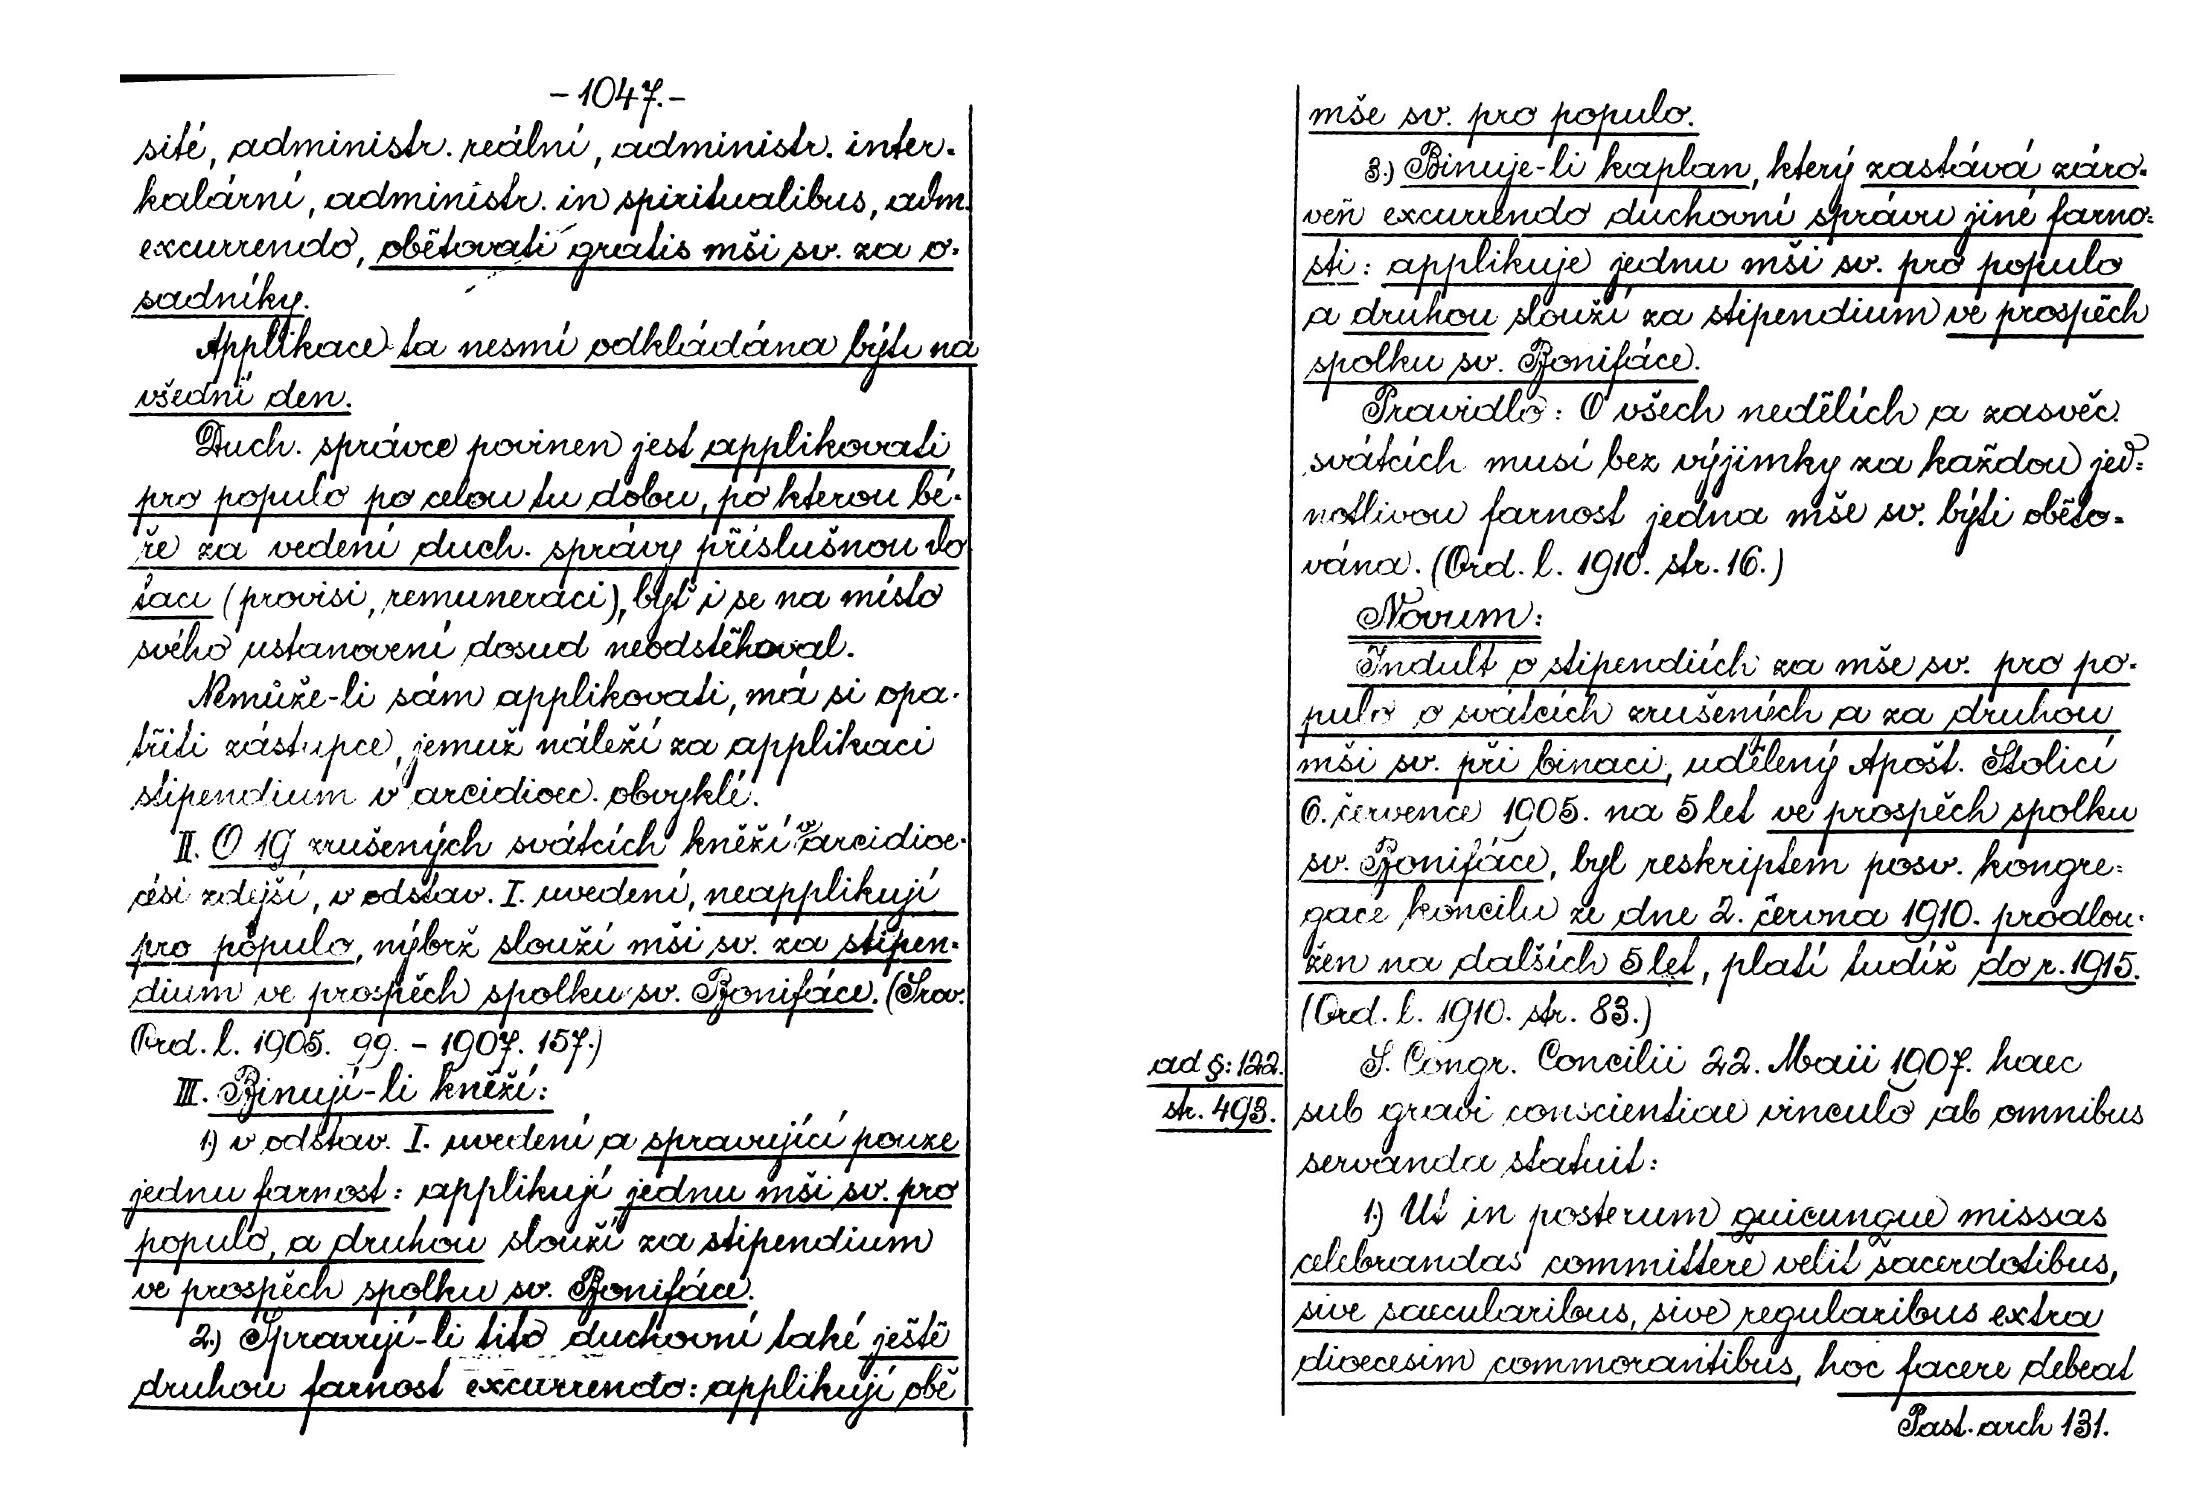 - 1047. -
sité, administr. reální, administr. inter-
kalární, administr. in spiritualibus, adm.
excurrendo, obětovati gratis mši sv. za o-
sadníky.
Applikace ta nesmí odkládána býti na
všední den.
Duch. správce povinen jest applikovati
pro populo po celou tu dobu, po kterou bé-
ře za vedení duch. správy příslušnou do
taci (provisi, remuneraci), byť i se na místo
svého ustanovení dosud neodstěhoval.
Nemůže-li sám applikovati, má si opa-
třiti zástupce, jemuž náleží za applikaci
stipendium v arcidioec. obvyklé.
II. O 19 zrušených svátcích kněží v arcidioe-
césí zdejší, v odstav. I. uvedení, neapplikují
pro populo, nýbrž slouží mši sv. za stipen-
dium ve prospěch spolku sv. Bonifáce. (Srov.
Ord. l. 1905. 99. - 1907. 157.)
III. Binují-li kněží:
1) v odstav. I. uvedení a spravující pouze
jednu farnost: applikují jednu mši sv. pro
populo, a druhou slouží za stipendium
ve prospěch spolku sv. Bonifáce.
2.) Spravují-li tito duchovní také ještě
druhou farnost excurrendo: applikují obě
mše sv. pro populo.
3.) Binuje-li kaplan, který zastává záro-
veň excurrendo duchovní správu jiné farno-
sti: applikuje jednu mši sv. pro populo
a druhou slouží za stipendium ve prospěch
spolku sv. Bonifáce.
Pravidlo: O všech nedělích a zasvěc.
svátcích musí bez výjimky za každou jed-
notlivou farnost jedna mše sv. býti oběto-
vána. (Ord. l. 1910. str. 16.)
Novum:
Indult o stipendiích za mše sv. pro po-
pulo o svátcích zrušených a za druhou
mši sv. při binaci, udělený Apošt. Stolicí
6. července 1905. na 5 let ve prospěch spolku
sv. Bonifáce, byl reskriptem posv. kongre-
gace koncilu ze dne 2. června 1910. prodlou-
žen na dalších 5 let, platí tudíž do r. 1915.
(Ord. l. 1910. str. 83.)
ad §: 122.
str. 493.
S. Congr. Concilii 22. Maii 1907. haec
sub gravi conscientiae vinculo ab omnibus
servanda statuit:
1.) Ut in posterum quicunque missas
celebrandas committere velit sacerdotibus,
sive saecularibus, sive regularibus extra
dioecesim commorantibus, hoc facere debeat
Past. arch 131.